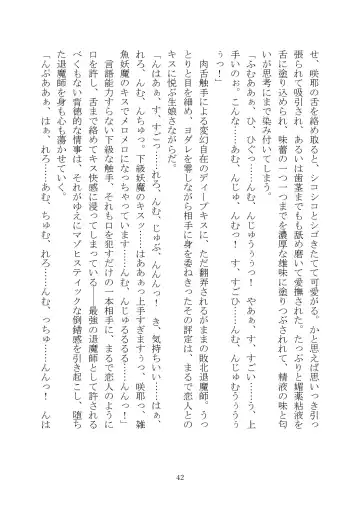 せ、咲耶の舌を絡め取ると、シコシコとシゴきたてて可愛がる。かと思えば思いっき引っ
張られて吸引され、あるいは歯茎までもを舐め磨いて愛撫された。たっぷりと媚薬粘液を
舌に塗り込められ、味蕾の一つ一つまでを濃厚な雄味に塗りつぶされて、精液の味と匂
いが思考にまで染み付いてしまう。
「ふむああぁ、ひ、ひぐっ……んむ、んじゅうぅぅ！　やああぁ、す、すごい……う、上
手いのぉ。こんな……あむ、んじゅ、んむっ！　す、すごひ……んむ、んじゅむうぅぅう
うっ！」
　肉舌触手による変幻自在のディープキスに、ただ翻弄されるがままの敗北退魔師。うっ
とりと目を細め、ヨダレを零しながら相手に身を委ねきったその評定は、まるで恋人との
キスに悦ぶ生娘さながらだ。
「んはあぁ、す、すごっ……れろ、んむ、じゅぶ、んんんっ！　き、気持ちいい……はぁ、
れろ、んむ、んちゅっ。下級妖魔のキスッ……はあああっ上手すぎますぅっ、咲耶っ、雑
魚妖魔のキスでメロメロになっちゃっています……んむ、んじゅるるるる……んんっ！」
　言語能力すらない下級な触手、それも口を犯すだけの一本相手に、まるで恋人のように
口を許し、舌まで絡めてキス快感に浸ってしまっている――最強の退魔師として許される
べくもない背徳的な情事は、それがゆえにマゾヒスティックな倒錯感を引き起こし、堕ち
た退魔師を身も心も蕩かせていく。
「んぶああぁ、はぁ、れろ……あむ、ちゅむ、れろ……んむ、っちゅ……んんっ！　んは
42